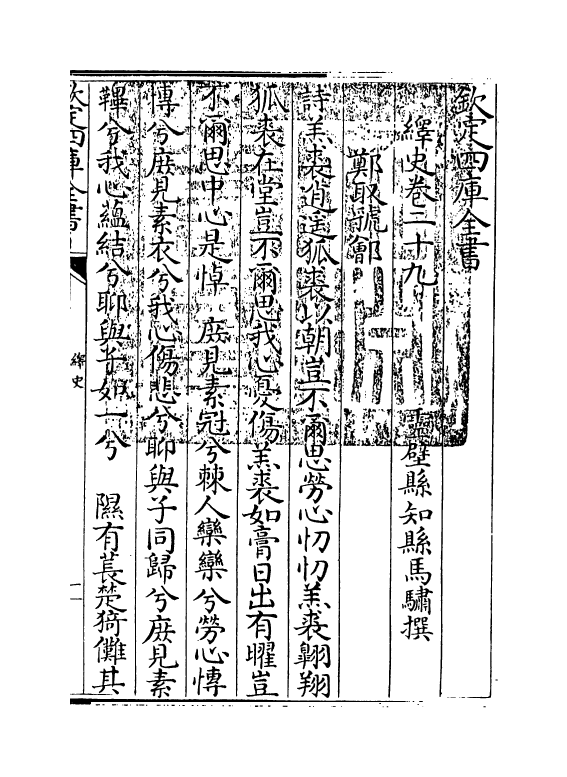 欽定四庫全書
繹史卷二十九
靈壁縣知縣馬驌撰
鄭取虢鄶
詩羔裘逍遙狐裘以朝豈不爾思勞心忉忉羔裘翺翔
狐裘在堂豈不爾思我心憂傷羔裘如膏日出有曜豈
不爾思中心是悼　庶見素冠兮棘人欒欒兮勞心慱
慱兮庶見素衣兮我心傷悲兮聊與子同歸兮庶見素
鞸兮我心蘊結兮聊與子如一兮　隰有萇楚猗儺其
欽定四庫全書
繹史
一